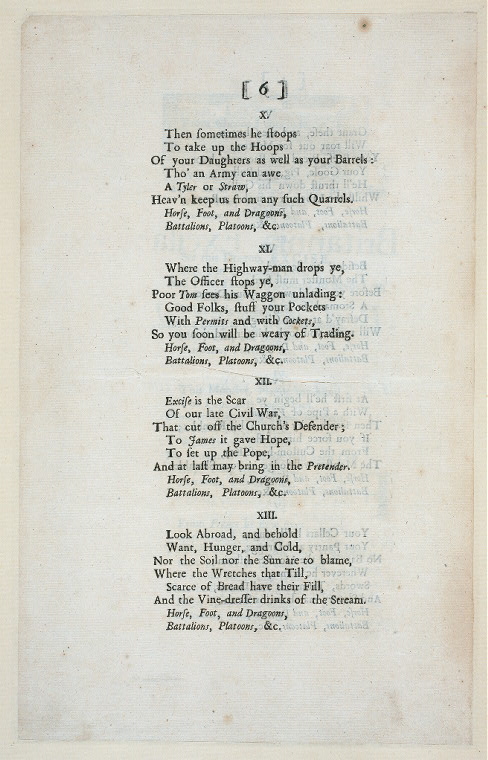 [ 6 ]
X.
Then ſometimes he ſtoops
To take up the Hoops
Of your Daughters as well as your Barrels:
Tho' an Army can awe
A Tyler or Straw,
Heav'n keep us from any ſuch Quarrels.
Horſe, Foot, and Dragoons,
Battalions, Platoons, &c.
XI.
Where the Highway-man drops ye,
The Officer ſtops ye,
Poor Tom ſees his Waggon unlading:
Good Folks, ſtuff your Pockets
With Permits and with Cockets,
So you ſoon will be weary of Trading.
Horſe, Foot, and Dragoons,
Battalions, Platoons, &c.
XII.
Exciſe is the Scar
Of our late Civil War,
That cut off the Church's Defender;
To James it gave Hope,
To ſet up the Pope,
And at laſt may bring in the Pretender.
Horſe, Foot, and Dragoons,
Battalions, Platoons, &c.
XIII.
Look Abroad, and behold
Want, Hunger, and Cold,
Nor the Soil nor the Sun are to blame,
Where the Wretches that Till,
Scarce of Bread have their Fill,
And the Vine-dreſſer drinks of the Stream.
Horſe, Foot, and Dragoons,
Battalions, Platoons, &c.